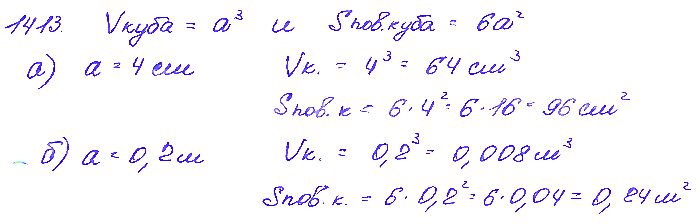 1413. Vкуба = a³ и Sпов.куба = 6a²
а) a = 4 см Vк. = 4³ = 64 см³
Sпов.к = 6·4² = 6·16 = 96 см²
б) a = 0,2 м Vк. = 0,2³ = 0,008 м³
Sпов.к. = 6·0,2² = 6·0,04 = 0,24 м²